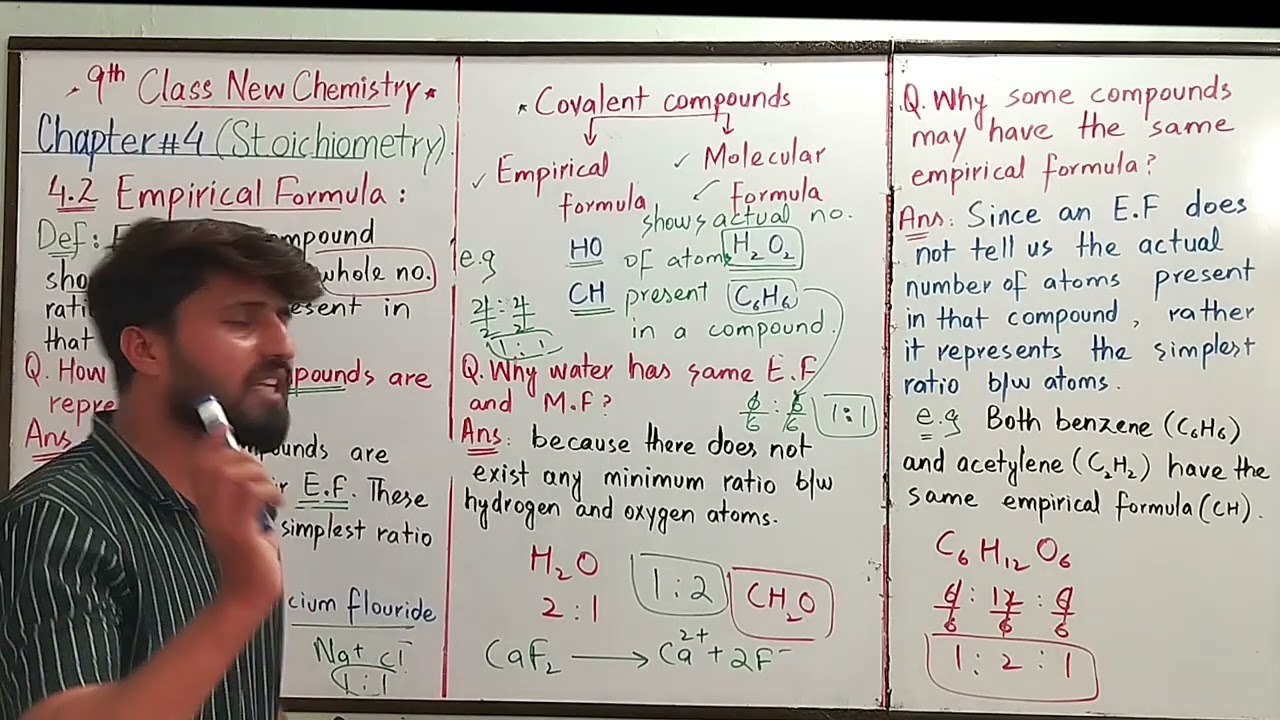 * 9th Class New Chemistry *
Chapter#4 (Stoichiometry).
4.2 Empirical Formula :
Def: compound
sho whole no.
rati esent in
that
Q. How pounds are
repre
Ans ounds are
E.F. These
simplest ratio
cium flouride
Na+ Cl-
1:1
* Covalent compounds
✓ Empirical formula
✓ Molecular formula
shows actual no.
e.g HO of atoms H2O2
2/2 : 2/2 CH present C6H6
1 : 1 in a compound.
Q. Why water has same E.F
and M.F?
6/6 : 6/6 1:1
Ans: because there does not
exist any minimum ratio b/w
hydrogen and oxygen atoms.
H2O
2 : 1
1 : 2
CH2O
CaF2 → Ca2+ + 2F-
Q. Why some compounds
may have the same
empirical formula?
Ans: Since an E.F does
not tell us the actual
number of atoms present
in that compound, rather
it represents the simplest
ratio b/w atoms.
e.g Both benzene (C6H6)
and acetylene (C2H2) have the
same empirical formula (CH).
C6H12O6
6/6 : 12/6 : 6/6
1 : 2 : 1